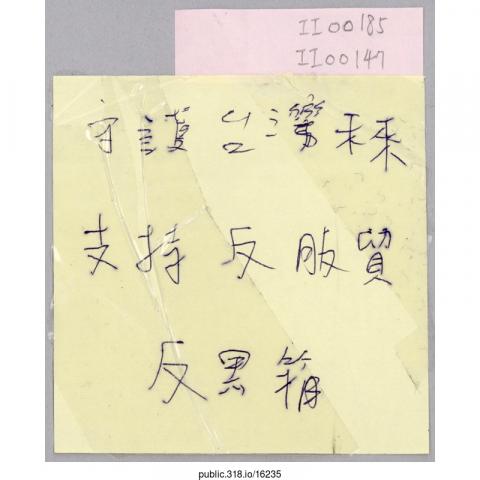 II00185
II00147
守護台灣未來
支持反服貿
反黑箱
public.318.io/16235